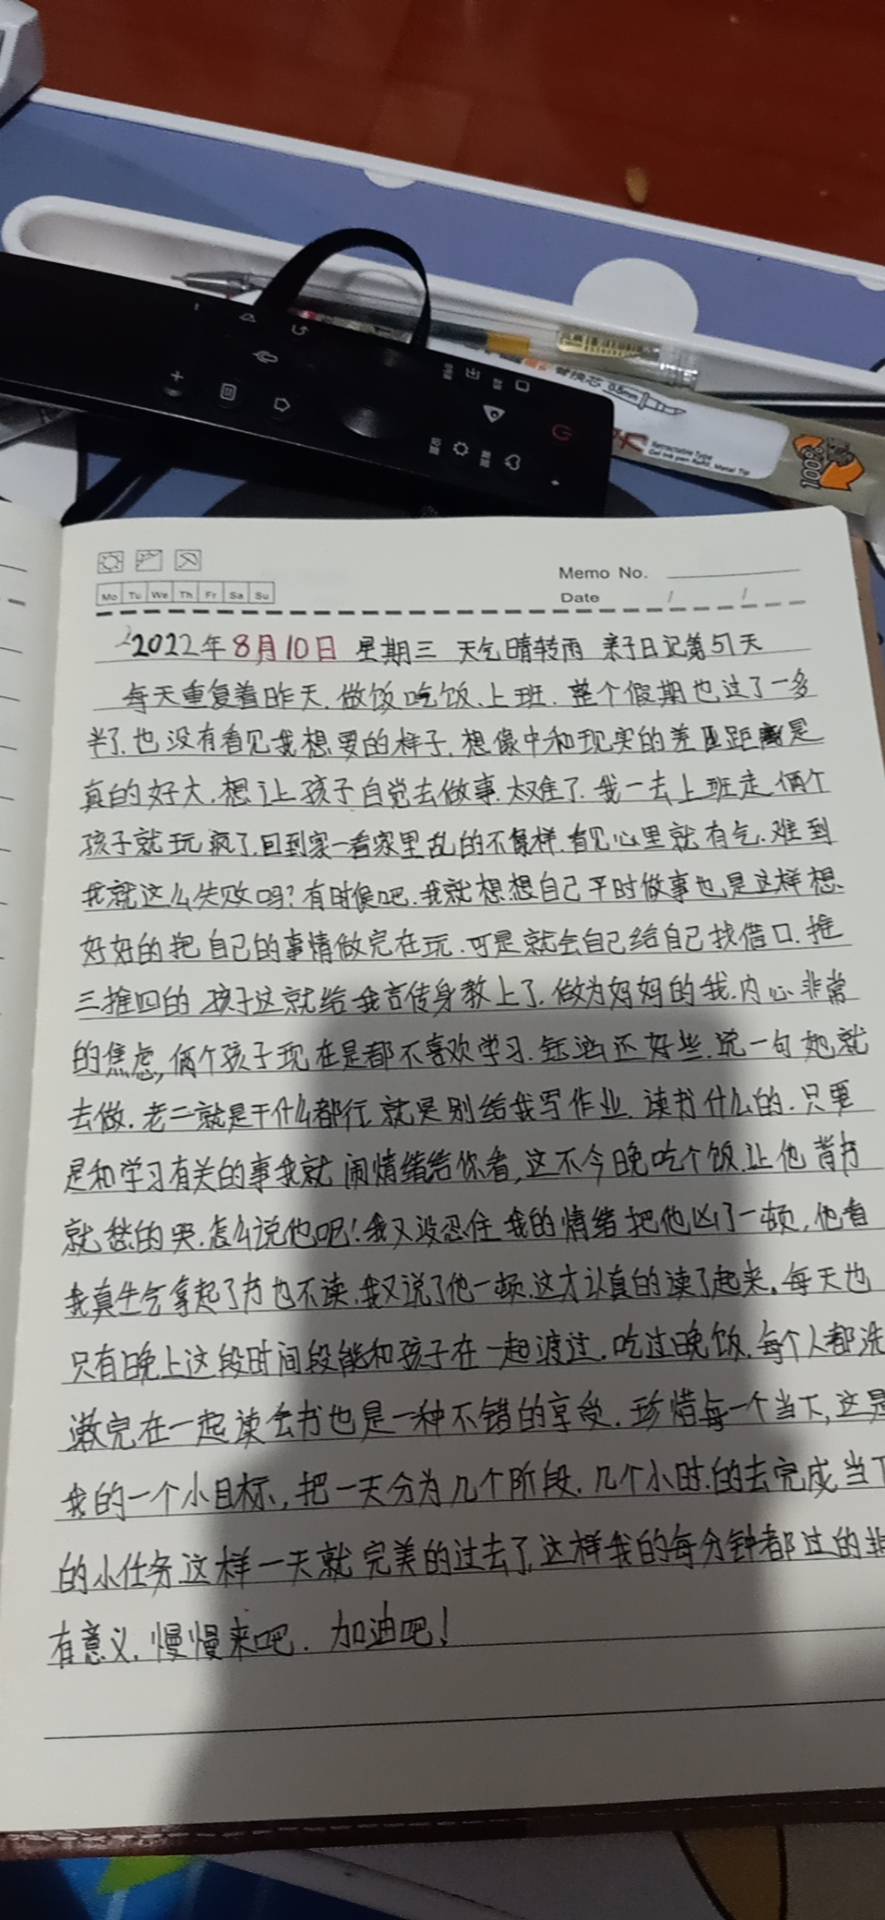 替换芯 0.5mm
Retractable Type
Gel ink pen Refill, Metal Tip
100%
Memo No.
Mo Tu We Th Fr Sa Su
Date / /
2022年8月10日 星期三 天气晴转雨 亲子日记第51天
每天重复着昨天.做饭吃饭.上班.整个假期也过了一多
半了.也没有看见我想要的样子.想像中和现实的差距距离是
真的好大.想让孩子自觉去做事.太难了.我一去上班走.俩个
孩子就玩疯了.回到家一看家里乱的不像样.看见心里就有气.难到
我就这么失败吗?有时候吧.我就想想自己平时做事也是这样想.
好好的把自己的事情做完在玩.可是就会自己给自己找借口.推
三推四的.孩子这就给我言传身教上了.做为妈妈的我.内心非常
的焦虑,俩个孩子现在是都不喜欢学习.钰涵还好些.说一句她就
去做.老二就是干什么都行.就是别给我写作业.读书什么的.只要
是和学习有关的事我就闹情绪给你看,这不今晚吃个饭.让他背书
就愁的哭.怎么说他呢!我又没忍住我的情绪把他凶了一顿,他看
我真生气拿起了书也不读.我又说了他一顿.这才认真的读了起来。每天也
只有晚上这段时间段能和孩子在一起渡过.吃过晚饭.每个人都洗
漱完在一起读会书也是一种不错的享受.珍惜每一个当下,这是
我的一个小目标,把一天分为几个阶段.几个小时.的去完成当下
的小任务这样一天就完美的过去了,这样我的每分钟都过的非
有意义.慢慢来吧.加油吧!